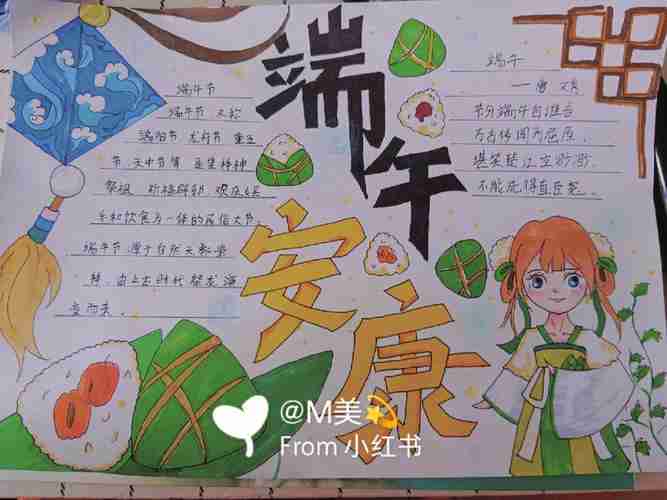 端午安康
端午节
端午节 又称
端阳节 龙舟节 重五
节、天中节等 是集拜神
祭祖 祈福辟邪 欢庆娱
乐和饮食为一体的民俗大节。
端午节源于自然天象崇
拜、由上古时代祭龙演
变而来。
端午
——唐 文秀
节分端午自谁言
万古传闻为屈原。
堪笑楚江空渺渺，
不能洗得直臣冤。
@M美
From 小红书